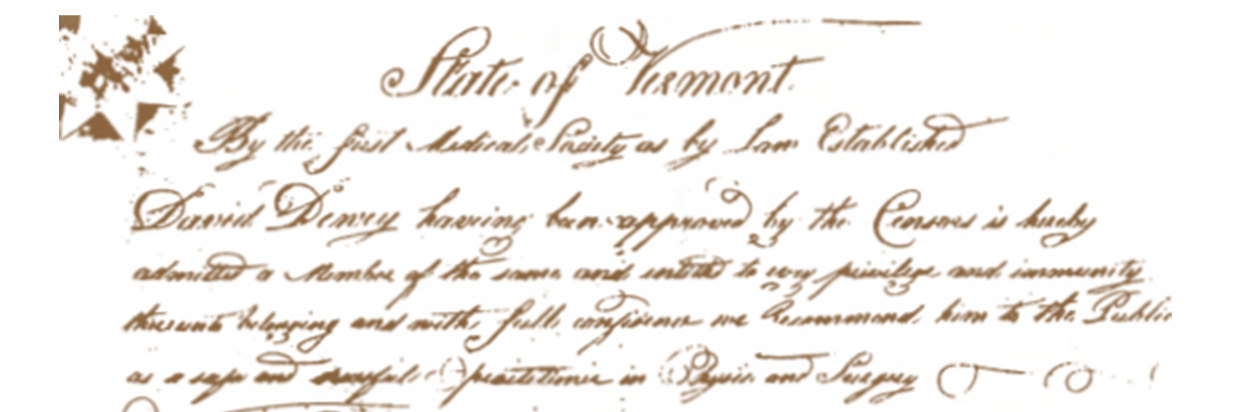 State of Vermont.
By the first Medical Society as by Law Established
David Dewey having been approved by the Censors is hereby
admitted a Member of the same and intitled to every privilege and immunity
thereunto belonging and with full confidence we Recommend him to the Public
as a safe and practitioner in Physic and Surgery